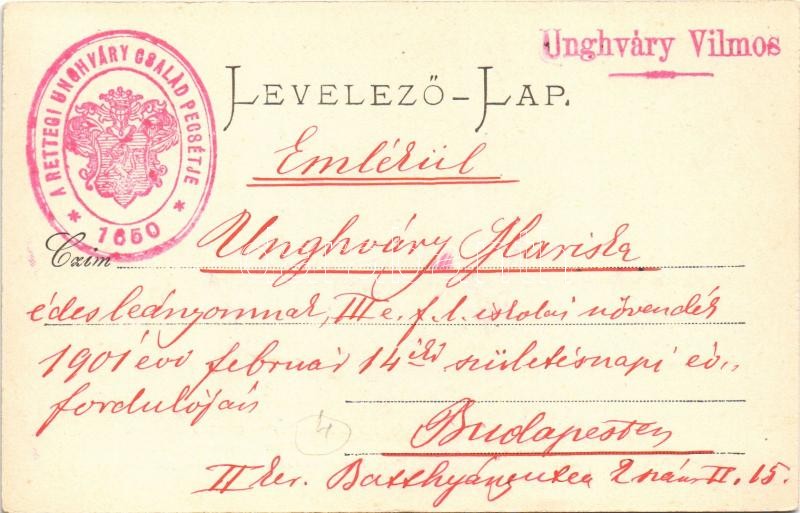 A RETTEGI UNGHVÁRY CSALÁD PECSÉTJE
* 1650 *
Unghváry Vilmos
LEVELEZŐ-LAP.
Emlékül
Czim Unghváry Mariska
édes leányomnak, III e. f. l. iskolai növendék
1901 évi február 14 iki születésnapi év„
fordulóján
4
Budapesten
II ker. Batthyányutca 2 szám II. 15.